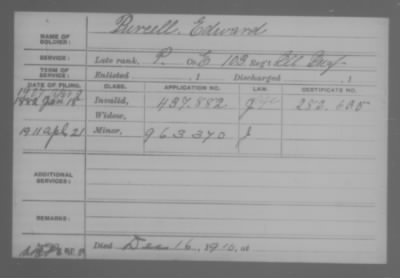 NAME OF SOLDIER: Purcell, Edward
SERVICE: Late rank, P. Co. E 103 Reg't Ill Inf
TERM OF SERVICE: Enlisted , 1 Discharged , 1
DATE OF FILING. CLASS. APPLICATION NO. LAW. CERTIFICATE NO.
1882 Jan 18 Invalid, 437.882 253.635
Widow,
1911 Apl 21 Minor, 963370
ADDITIONAL SERVICES:
REMARKS:
Died Dec 16, 1910, at